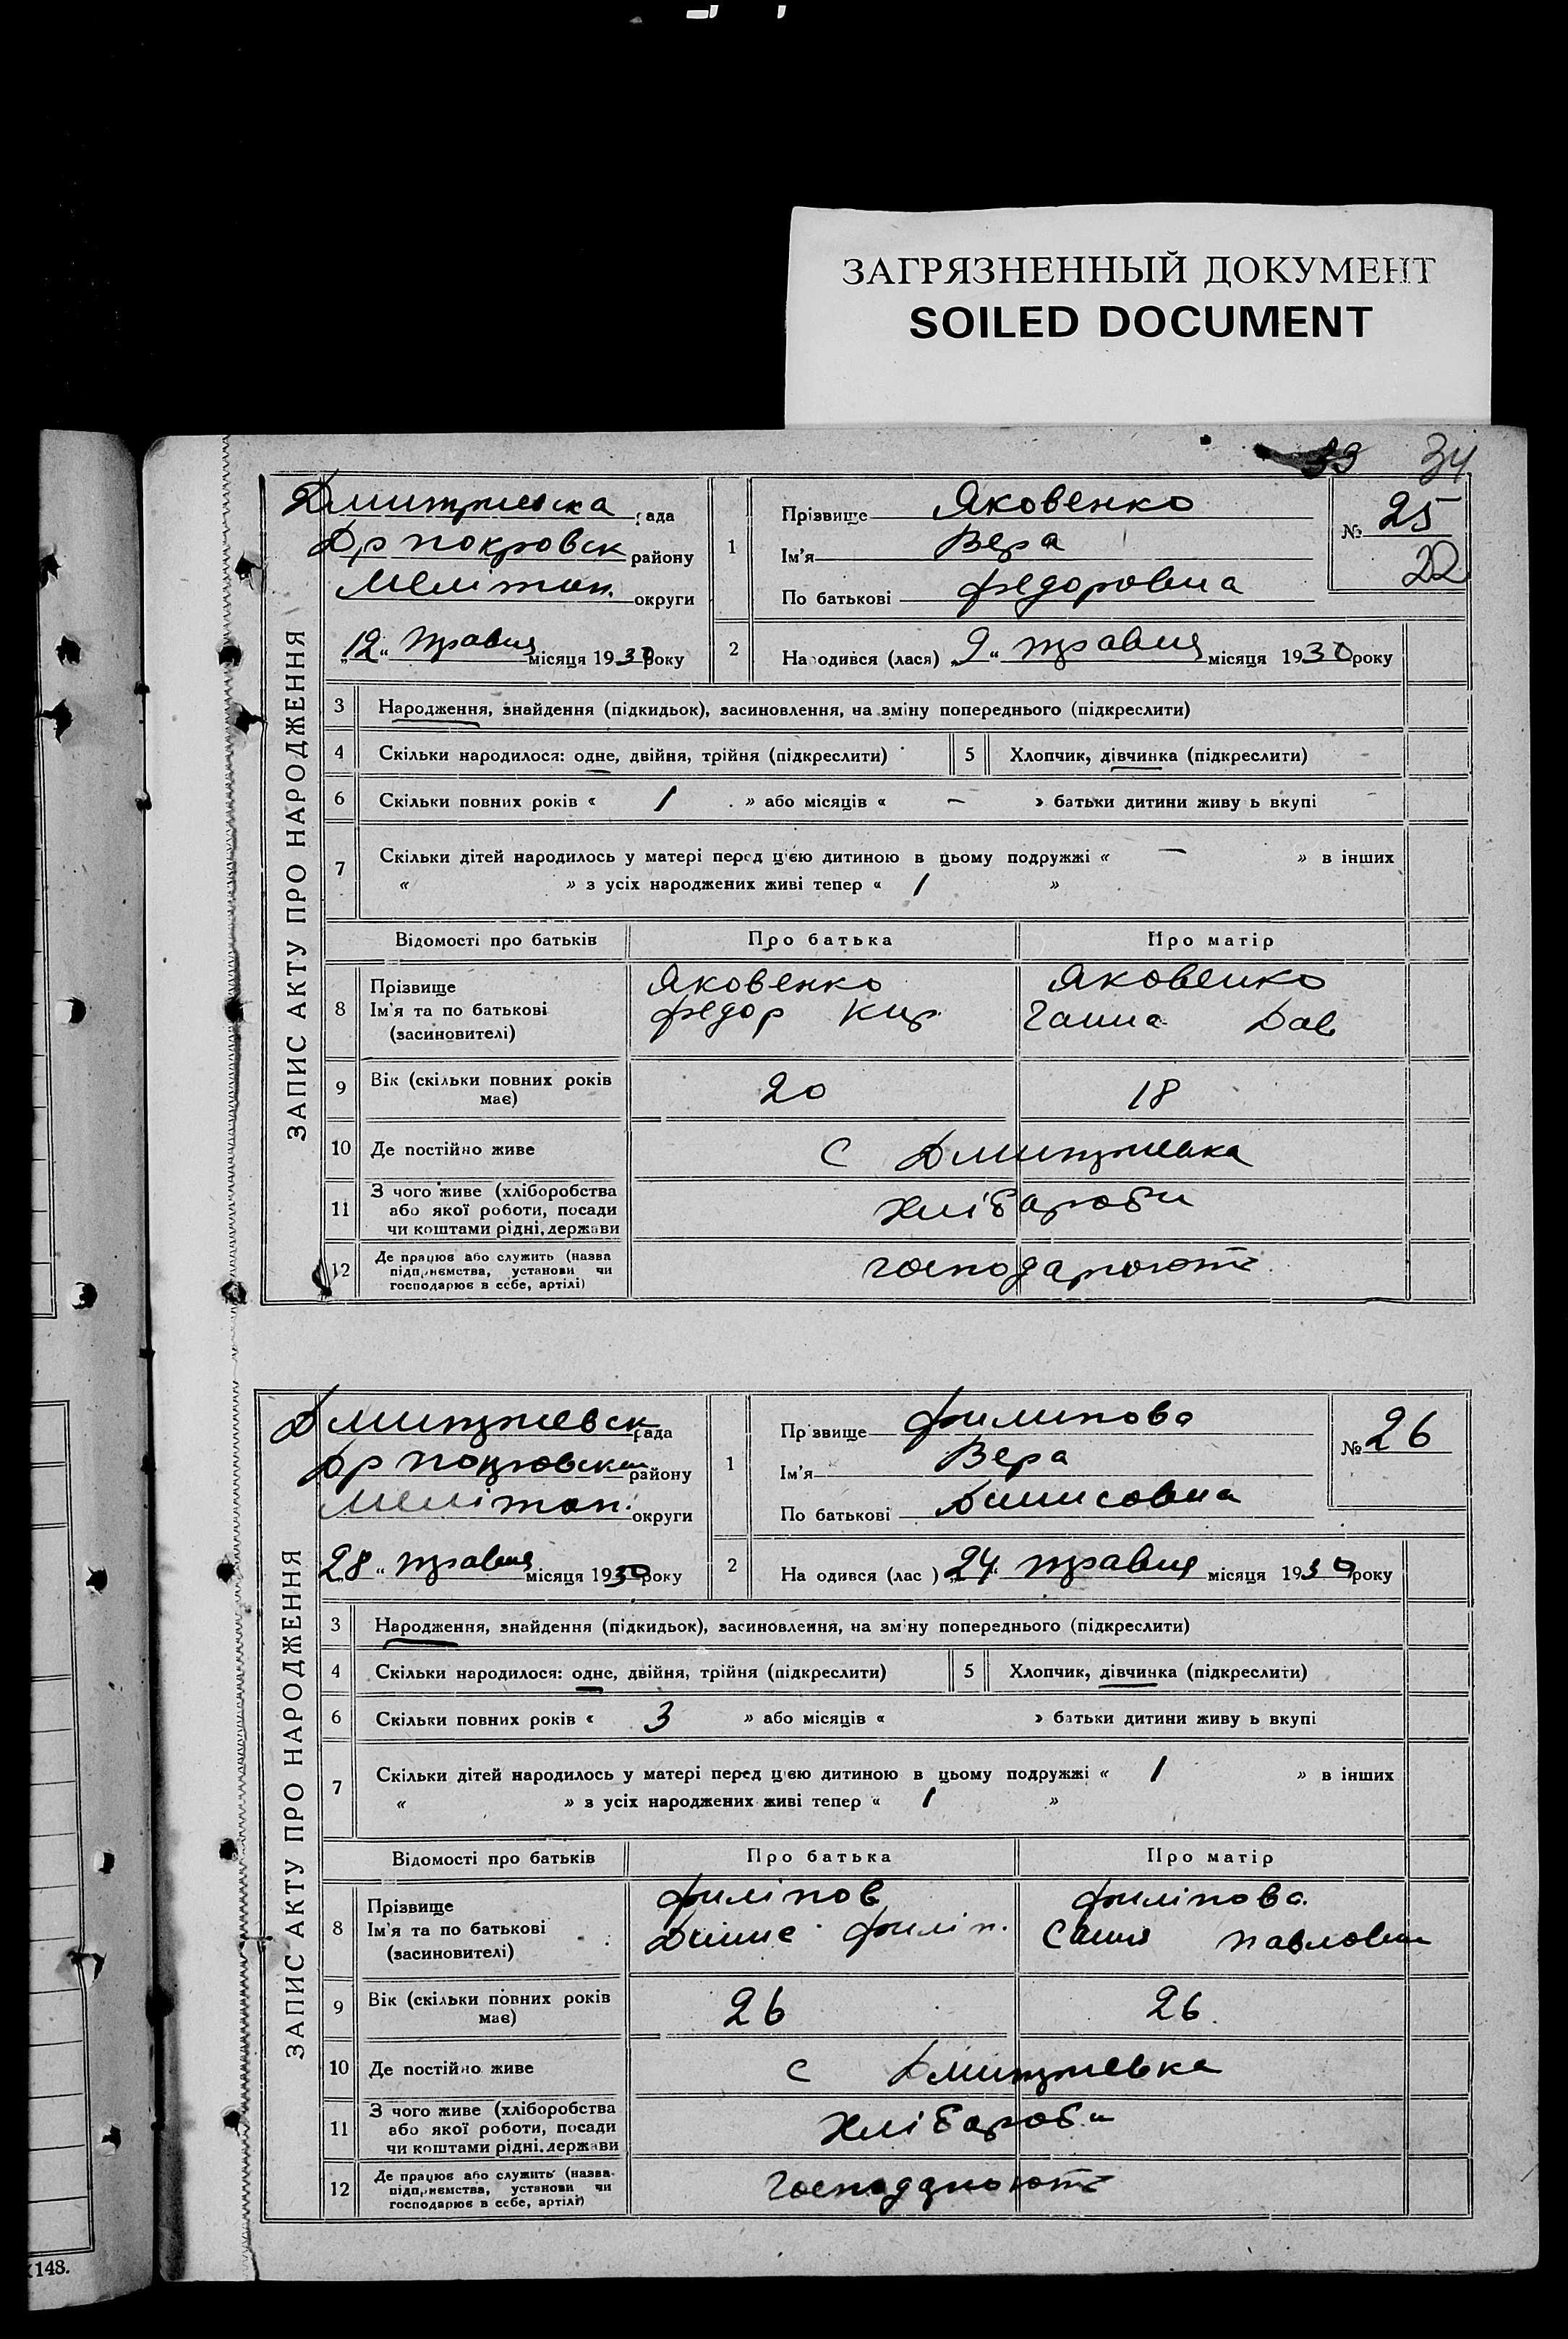 ЗАГРЯЗНЕННЫЙ ДОКУМЕНТ
SOILED DOCUMENT
33 34
ЗАПИС АКТУ ПРО НАРОДЖЕННЯ
Дмитриевска рада
Др покровск району
Мелітоп. округи
„12“ травня місяця 1930 року
1
Прізвище Яковенко
Ім'я Вера
По батькові Федоровна
№ 25
22
2
Народився (лася) „9“ травня місяця 1930 року
3 Народження, знайдення (підкидьок), засиновлення, на зміну попереднього (підкреслити)
4 Скільки народилося: одне, двійня, трійня (підкреслити)
5 Хлопчик, дівчинка (підкреслити)
6 Скільки повних років « 1 » або місяців « – » батьки дитини живу ь вкупі
7 Скільки дітей народилось у матері перед цією дитиною в цьому подружжі « – » в інших
« » з усіх народжених живі тепер « 1 »
Відомості про батьків Про батька Про матір
8 Прізвище
Ім'я та по батькові
(засиновителі)
Яковенко
Федор Кир
Яковенко
Ганна Дав
9 Вік (скільки повних років
має)
20 18
10 Де постійно живе С Дмитриевка
11 З чого живе (хліборобства
або якої роботи, посади
чи коштами рідні, держави
Хлібароби
12 Де працює або служить (назва
підприємства, установи чи
господарює в себе, артілі)
господарюють
ЗАПИС АКТУ ПРО НАРОДЖЕННЯ
Дмитриевск рада
Др покровск району
Мелітоп. округи
„28“ травня місяця 1930 року
1
Пр звище Филипова
Ім'я Вера
По батькові Динисовна
№ 26
2
На одився (лас ) „24“ травня місяця 1930 року
3 Народження, знайдення (підкидьок), засиновлення, на зм ну попереднього (підкреслити)
4 Скільки народилося: одне, двійня, трійня (підкреслити)
5 Хлопчик, дівчинка (підкреслити)
6 Скільки повних років « 3 » або місяців « » батьки дитини живу ь вкупі
7 Скільки дітей народилось у матері перед цією дитиною в цьому подружжі « 1 » в інших
« » з усіх народжених живі тепер « 1 »
Відомості про батьків Про батька Про матір
8 Прізвище
Ім'я та по батькові
(засиновителі)
Филіпов
Динис Филіп.
Филіпова
Павловна
9 Вік (скільки повних років
має)
26 26
10 Де постійно живе С Дмитриевка
11 З чого живе (хліборобства
або якої роботи, посади
чи коштами рідні, держави
Хлібароби
12 Де працює або служить (назва
підприємства, установи чи
господарює в себе, артілі)
Господарюють
148.